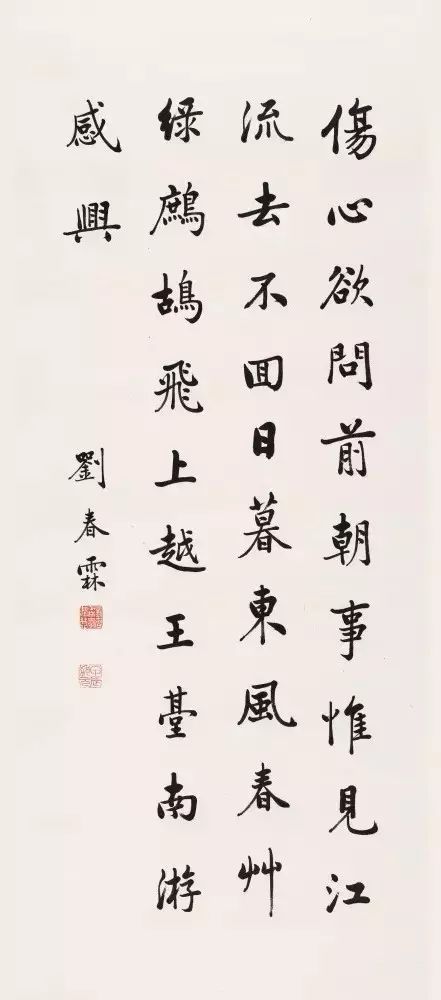 傷心欲問前朝事惟見江
流去不回日暮東風春艸
綠鷓鴣飛上越王臺南游
感興
劉春霖